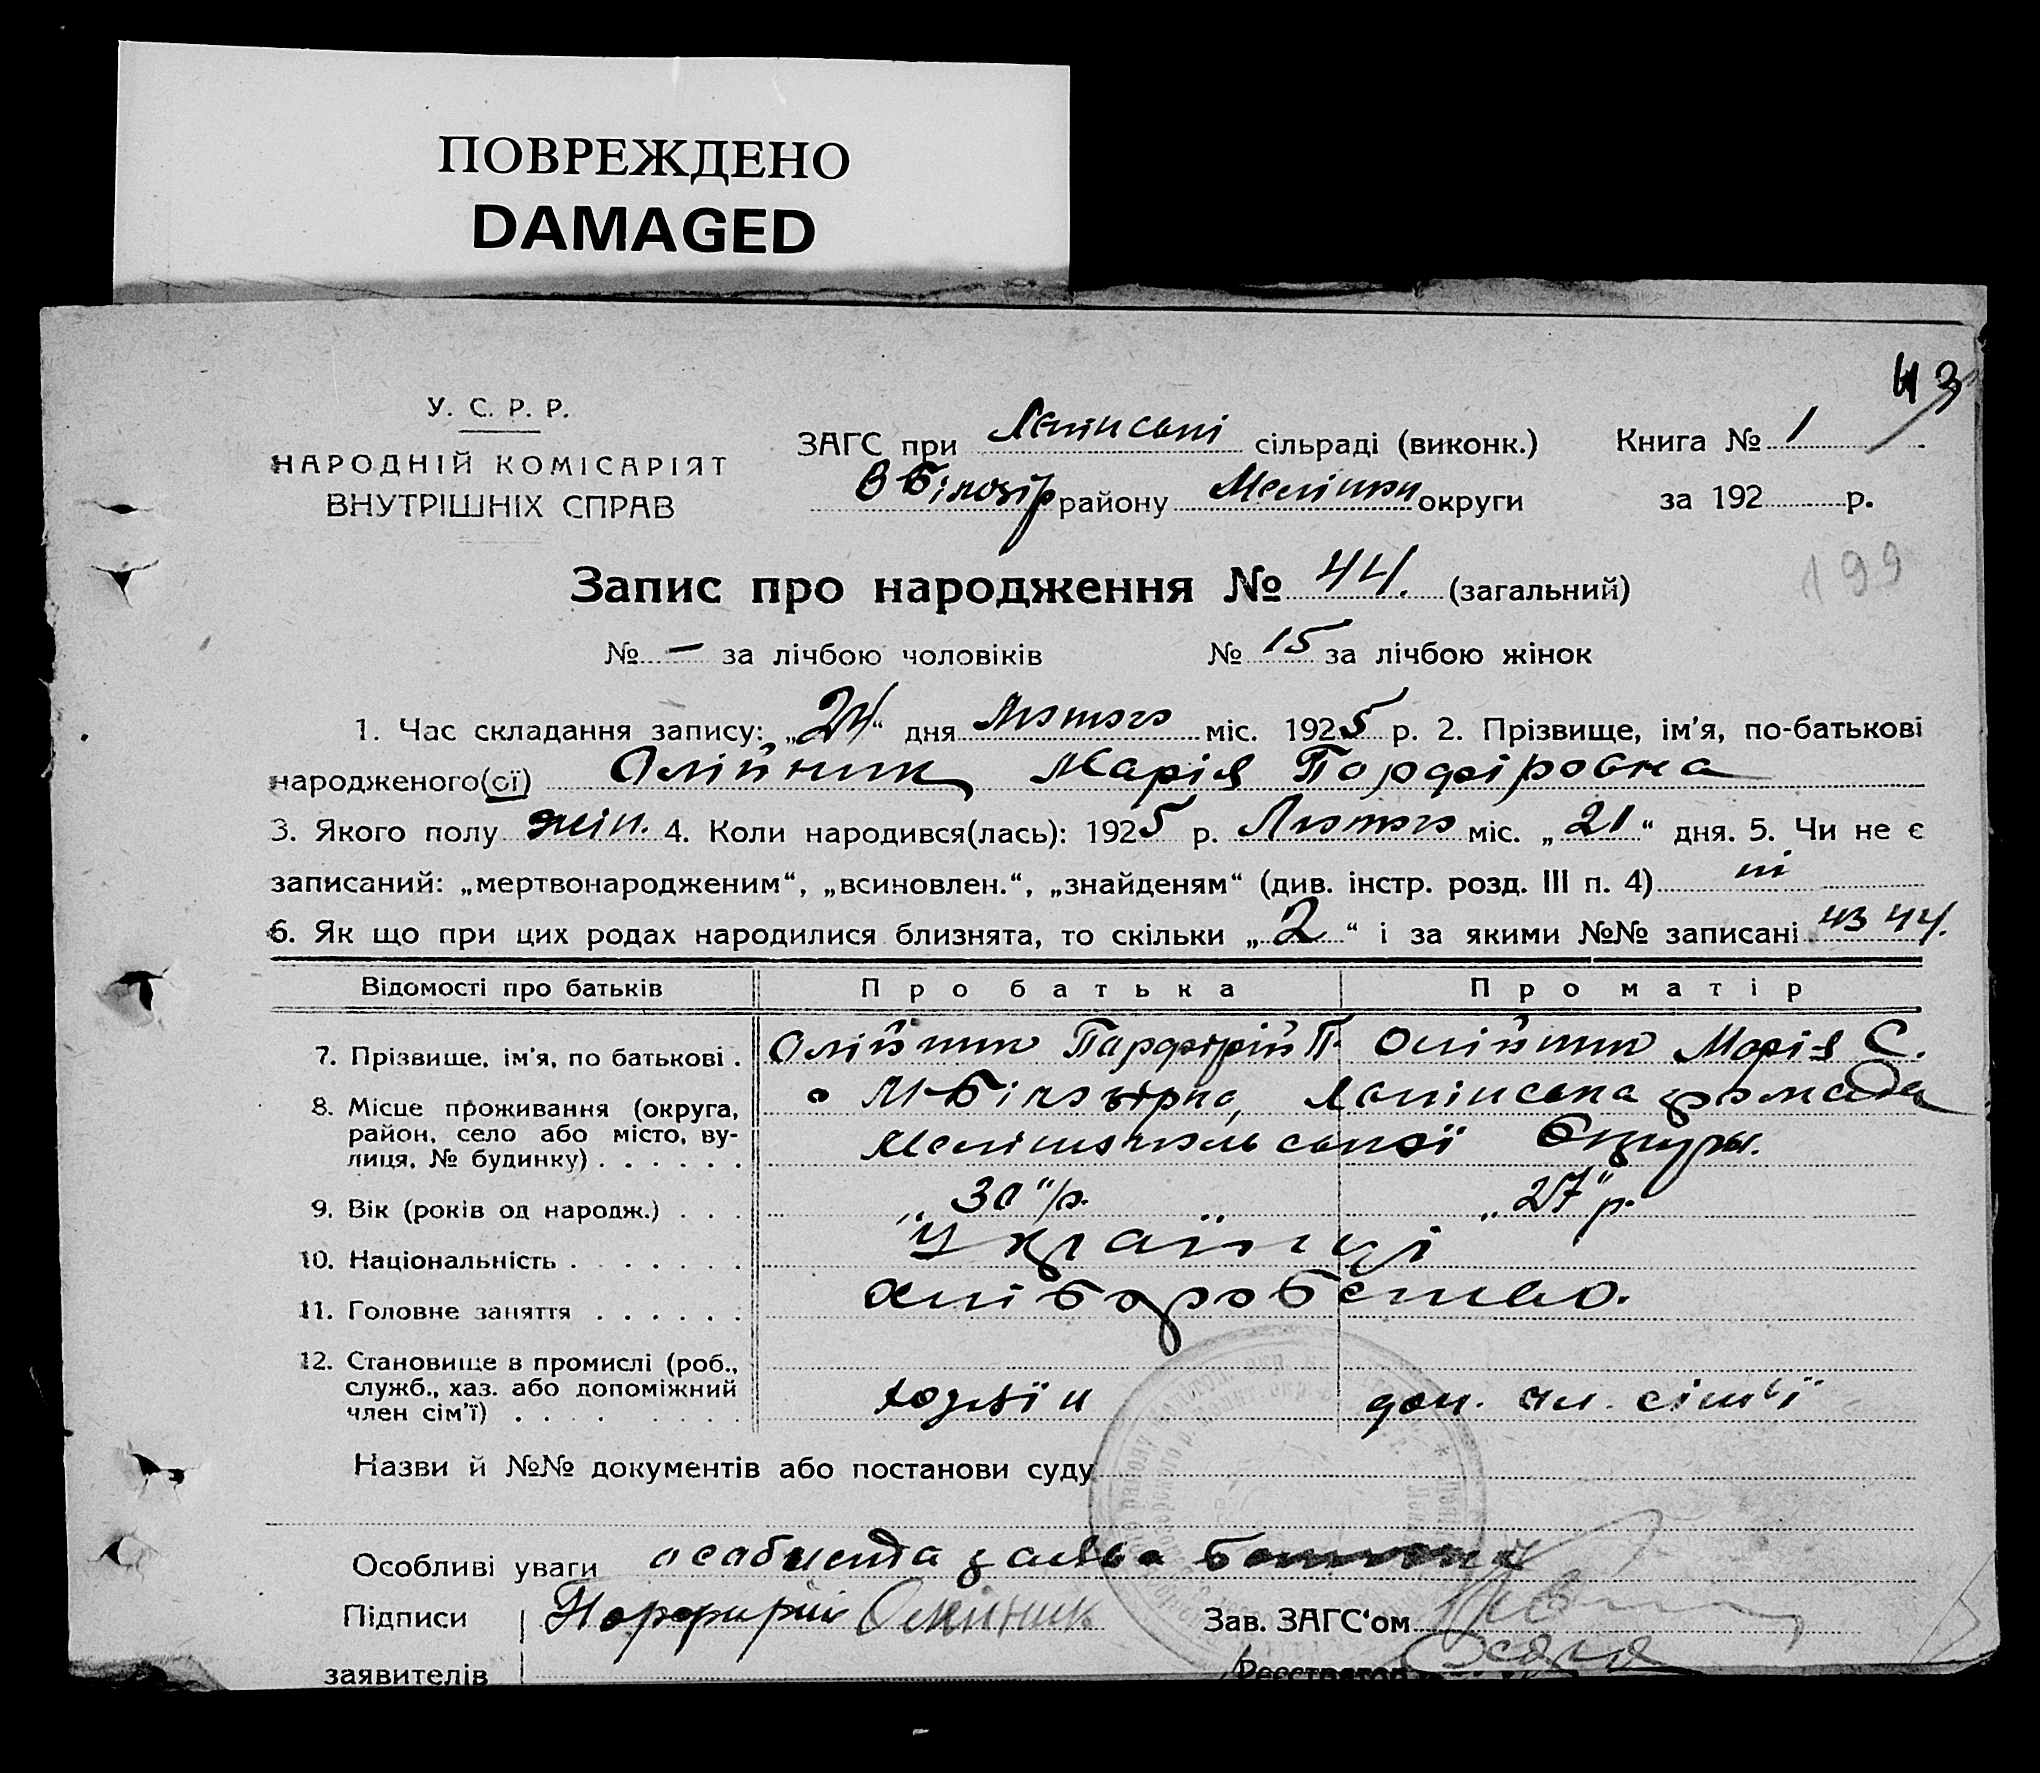 ПОВРЕЖДЕНО
DAMAGED
43
У. С. Р. Р.
НАРОДНІЙ КОМІСАРІЯТ
ВНУТРІШНІХ СПРАВ
ЗАГС при сільраді (виконк.) Книга № 1
району округи за 192 р.
199
Запис про народження № 44. (загальний)
№ – за лічбою чоловіків № 15 за лічбою жінок
1. Час складання запису: „24“ дня Лютого міс. 1925 р. 2. Прізвище, ім'я, по-батькові
народженого(ої) Олійник Марія Порфіровна
3. Якого полу жін. 4. Коли народився(лась): 1925 р. Лютого міс. „21“ дня. 5. Чи не є
записаний: „мертвонародженим“, „всиновлен.“, „знайденям“ (див. інстр. розд. III п. 4) ні
6. Як що при цих родах народилися близнята, то скільки „2“ і за якими №№ записані 43 44.
Відомості про батьків Про батька Про матір
7. Прізвище, ім'я, по батькові . Олійник Парфірій П. Олійник Марія С.
8. Місце проживання (округа, М-Білозірка, громада
район, село або місто, ву- Мелітопольської Округи.
лиця, № будинку) . . . . . .
9. Вік (років од народж.) . . . „30“ р. „27“ р.
10. Національність . . . . . . . Українці
11. Головне заняття . . . . . . хліборобство.
12. Становище в промислі (роб.,
служб., хаз. або допоміжний хозяїн доп. чл. сім'ї
член сім'ї) . . . . . . .
Назви й №№ документів або постанови суду
Особливі уваги особиста заява
Підписи Порфирій Олійник Зав. ЗАГС'ом
заявителів Реєстратор